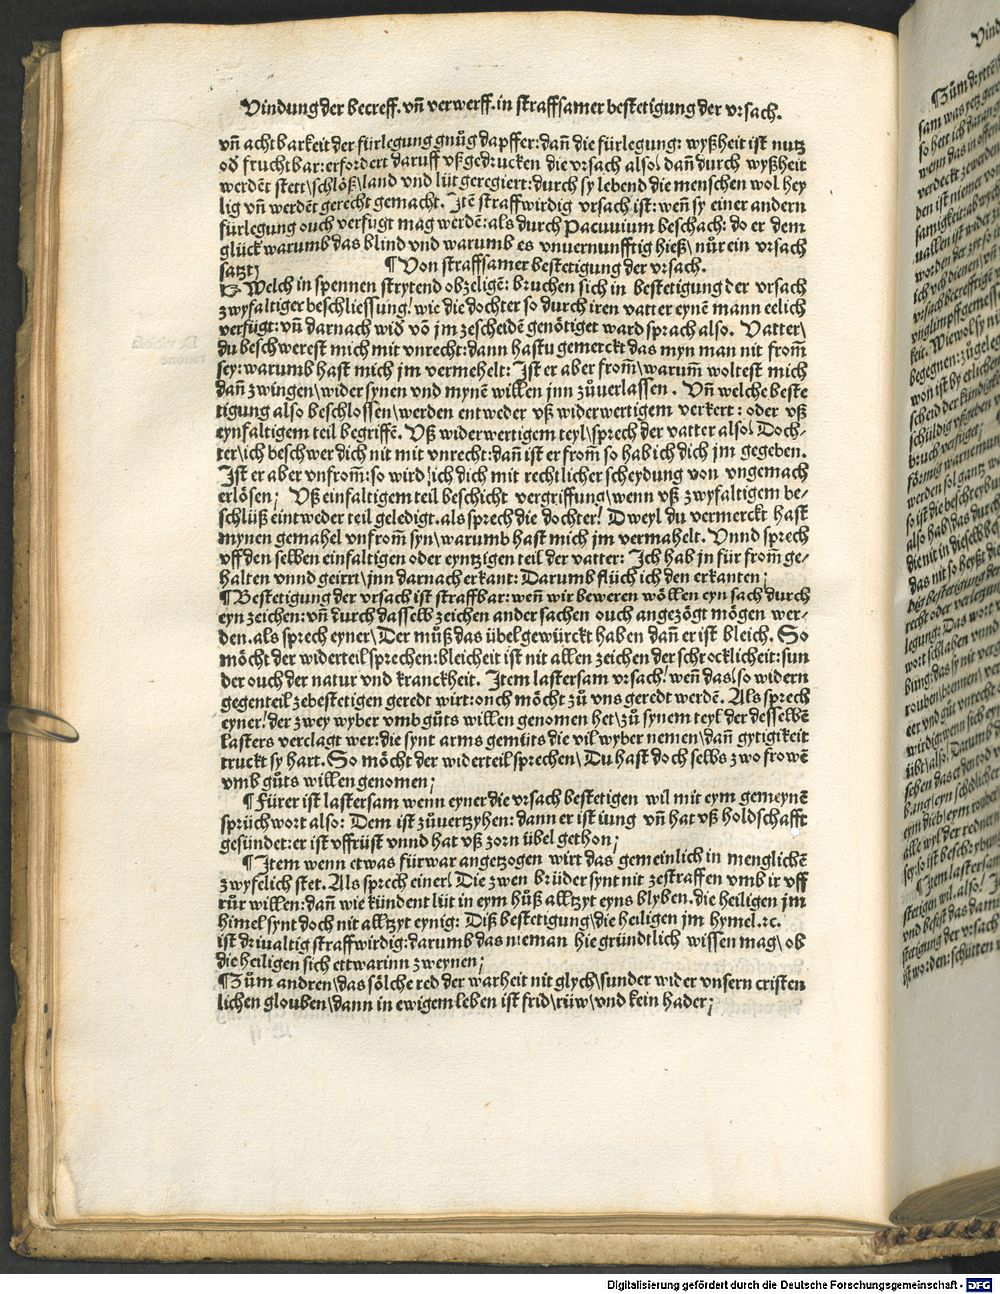 Vindung der betreff. vñ verwerff. in straffsamer bestetigung der vrsach.
vñ achtbarkeit der fürlegung gnůg dapffer: dañ die fürlegung: wyßheit ist nutz
od fruchtbar: erfordert daruff vßgedrucken die vrsach also/ dañ durch wyßheit
werdēt stett\schlöß\land vnd lüt geregiert: durch sy lebend die menschen wol hey
lig vñ werdēt gerecht gemacht. Itē straffwirdig vrsach ist: weñ sy einer andern
fürlegung ouch verfugt mag werdē: als durch Pacuuium beschach: do er dem
glück warumb das blind vnd warumb es vnuernunfftig hieß\ nůr ein vrsach
satzt; ¶ Von straffsamer bestetigung der vrsach.
Welch in spennen strytend obzeligē: bruchen sich in bestetigung der vrsach
zwyfaltiger beschliessung/ wie die dochter so durch iren vatter eynē mann eelich
verfügt: vñ darnach wid võ jm zescheidē genötiget ward sprach also. Vatter\
du beschwerest mich mit vnrecht: dann hastu gemerckt das myn man nit from̃
sey: warumb hast mich jm vermehelt: Ist er aber from̃\ warum̃ woltest mich
dañ zwingen\ wider synen vnd mynē willen jnn zůuerlassen. Vñ welche beste
tigung also beschlossen\ werden entweder vß widerwertigem verkert: oder vß
eynfaltigem teil begriffē. Vß widerwertigem teyl\ sprech der vatter also/ Doch-
ter\ ich beschwer dich nit mit vnrecht: dañ ist er from̃ so hab ich dich jm gegeben.
Ist er aber vnfrom̃: so wird/ ich dich mit rechtlicher scheydung von vngemach
erlösen; Vß einfaltigem teil beschicht vergriffung\ wenn vß zwyfaltigem be-
schlüß eintweder teil geledigt. als sprech die dochter/ Dweyl du vermerckt hast
mynen gemahel vnfrom̃ syn\ warumb hast mich jm vermahelt. Vnnd sprech
vff den selben einfaltigen oder eyntzigen teil der vatter: Ich hab jn für from̃ ge-
halten vnnd geirrt\ jnn darnach erkant: Darumb flüch ich den erkanten;
¶ Bestetigung der vrsach ist straffbar: weñ wir beweren wöllen eyn sach durch
eyn zeichen: vñ durch dasselb zeichen ander sachen ouch angezögt mögen wer-
den. als sprech eyner\ Der můß das übel gewürckt haben dañ er ist bleich. So
möcht der widerteil sprechen: bleicheit ist nit allen zeichen der schrocklicheit: sun
der ouch der natur vnd kranckheit. Item lastersam vrsach/ weñ das/ so widern
gegenteil zebestetigen geredt wirt: onch möcht zů vns geredt werdē. Als sprech
eyner/ der zwey wyber vmb gůts willen genomen het\ zů synem teyl der desselbē
lasters verclagt wer: die synt arms gemüts die vil wyber nemen\ dañ gytigikeit
truckt sy hart. So möcht der widerteil sprechen\ Du hast doch selbs zwo frowē
vmb gůts willen genomen;
¶ Fürer ist lastersam wenn eyner die vrsach bestetigen wil mit eym gemeynē
sprüchwort also: Dem ist zůuertzyhen: dann er ist iung vñ hat vß holdschafft
gesündet: er ist vffrüst vnnd hat vß zorn übel gethon;
¶ Item wenn etwas fürwar angetzogen wirt das gemeinlich in menglichē
zwyfelich stet. Als sprech einer/ Die zwen brüder synt nit zestraffen vmb ir vff
rür willen: dañ wie kündent lüt in eym hůß alltzyt eyns blyben. die heiligen jm
himel synt doch nit alltzyt eynig: Diß bestetigung\ die heiligen jm hymel. ⁊c.
ist driualtig straffwirdig: darumb das nieman hie gründtlich wissen mag\ ob
die heiligen sich ettwarinn zweynen;
¶ Zům andren\ das sölche red der warheit nit glych\ sunder wider vnsern cristen
lichen glouben\ dann in ewigem leben ist frid\ rüw\ vnd kein hader;
Digitalisierung gefördert durch die Deutsche Forschungsgemeinschaft - DFG